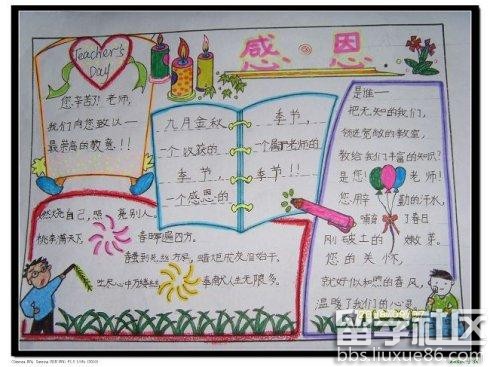 Teacher's
Day
感恩
您辛苦了!老师,
我们向您致以一
最崇高的敬意!!
九月金秋
季节,
一个收获的
一个属于老师的
季节,
季节!!
一个感恩的
是谁一
把无知的我们,
领进宽敞的教室,
教给我们丰富的知识?
是您!老师!
您用辛勤的汗水,
哺育了春日
刚破土的嫩芽。
您的关怀,
就好似和煦的春风,
温暖了我们的心灵。
燃烧自己,照亮别人。
桃李满天下,春晖遍四方。
春蚕到死丝方尽,蜡炬成灰泪始干。
奉献人生无限多。
留学社区
bbs.liuxue86.com